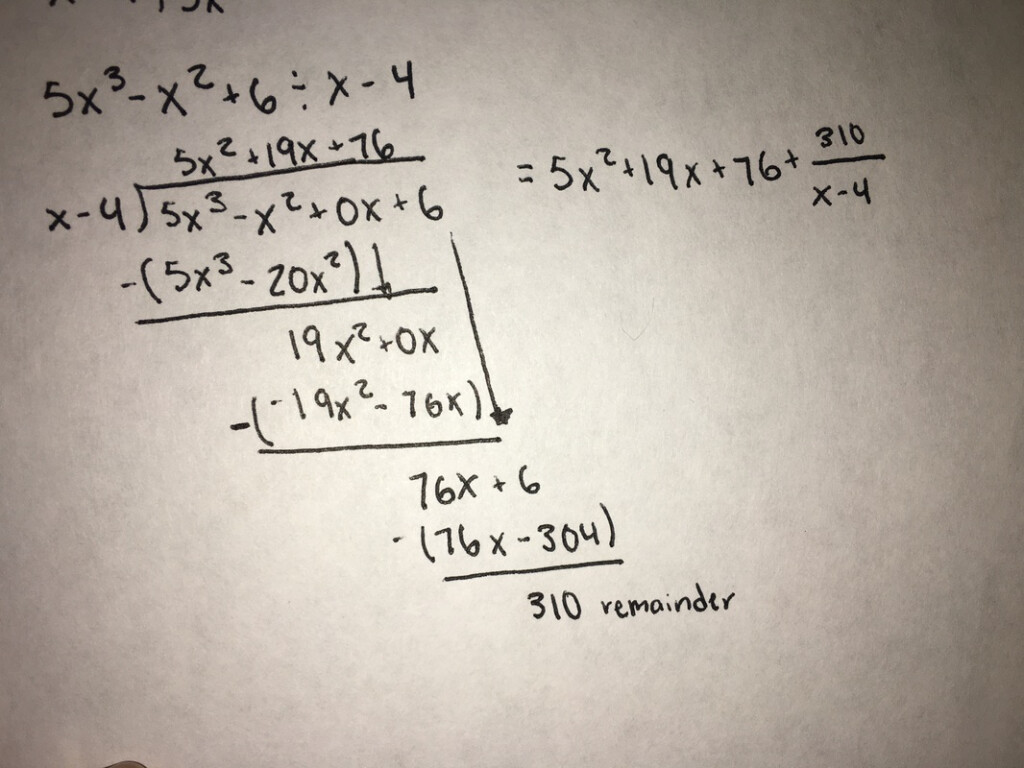 5x³ - x² + 6 ÷ x - 4
5x² + 19x + 76
x - 4 ) 5x³ - x² + 0x + 6
-(5x³ - 20x²) ↓
19x² + 0x
-(-19x² - 76x)
76x + 6
-(76x - 304)
310 remainder
= 5x² + 19x + 76 + 310/x-4